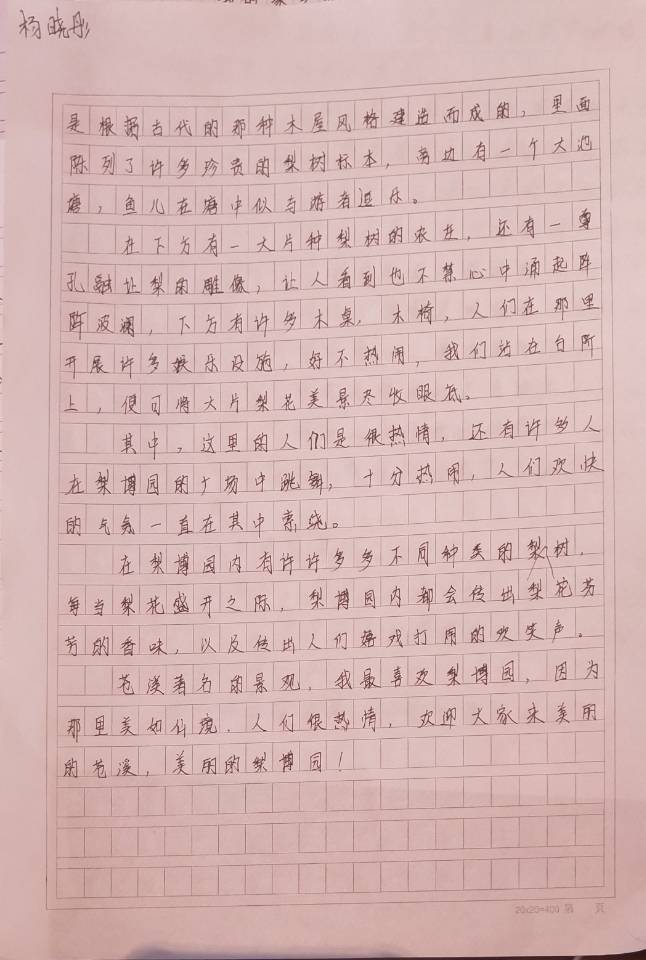 杨晓彤
是根据古代的那种木屋风格建造而成的，里面
陈列了许多珍贵的梨树标本，旁边有一个大池
塘，鱼儿在塘中似与游者逗乐。
在下方有一大片种梨树的农庄，还有一尊
孔融让梨的雕像，让人看到也不禁心中涌起阵
阵波澜，下方有许多木桌，木椅，人们在那里
开展许多娱乐设施，好不热闹，我们站在台阶
上，便可将大片梨花美景尽收眼底。
其中，这里的人们是很热情，还有许多人
在梨博园的广场中跳舞，十分热闹，人们欢快
的气氛一直在其中萦绕。
在梨博园内有许许多多不同种类的梨树，
每当梨花盛开之际，梨博园内都会传出梨花芬
芳的香味，以及传出人们嬉戏打闹的欢笑声。
苍溪著名的景观，我最喜欢梨博园，因为
那里美如仙境，人们很热情，欢迎大家来美丽
的苍溪，美丽的梨博园！
20x20=400 第 页